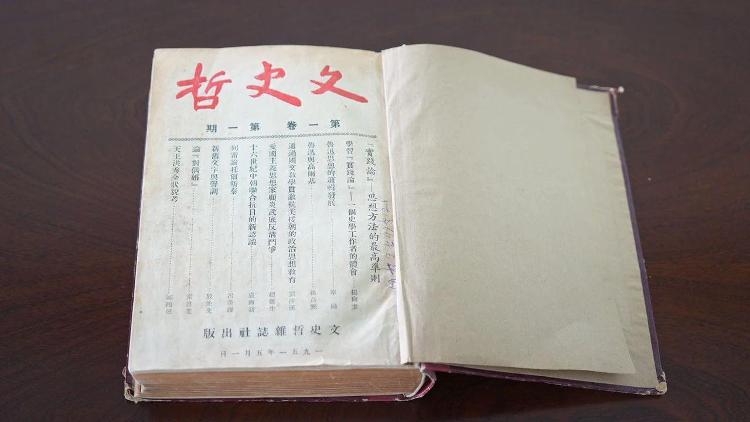 文史哲
第一卷 第一期
「實踐論」——思想方法的最高準則
學習「實踐論」——一個史學工作者的體會 楊向奎
魯迅思想的邏輯發展 華崗
魯迅與高爾基 孫昌熙
通過國文教學貫徹抗美援朝的政治思想教育 劉泮溪
愛國主義思想家顧炎武底反清鬥爭 趙儷生
十六世紀中朝聯合抗日的新認識
列甯論托爾斯泰 呂熒譯
新舊文字與聲調 殷煥先
論「對偶婚」 童書業
天王洪秀全狀貌考 鄭鶴聲
文史哲雜誌社出版
一九五一年五月一日